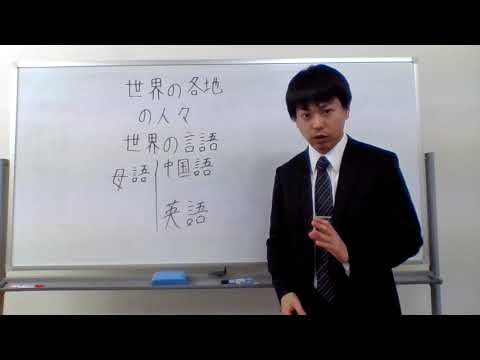 世界の各地
の人々
世界の言語
母語 中国語
英語